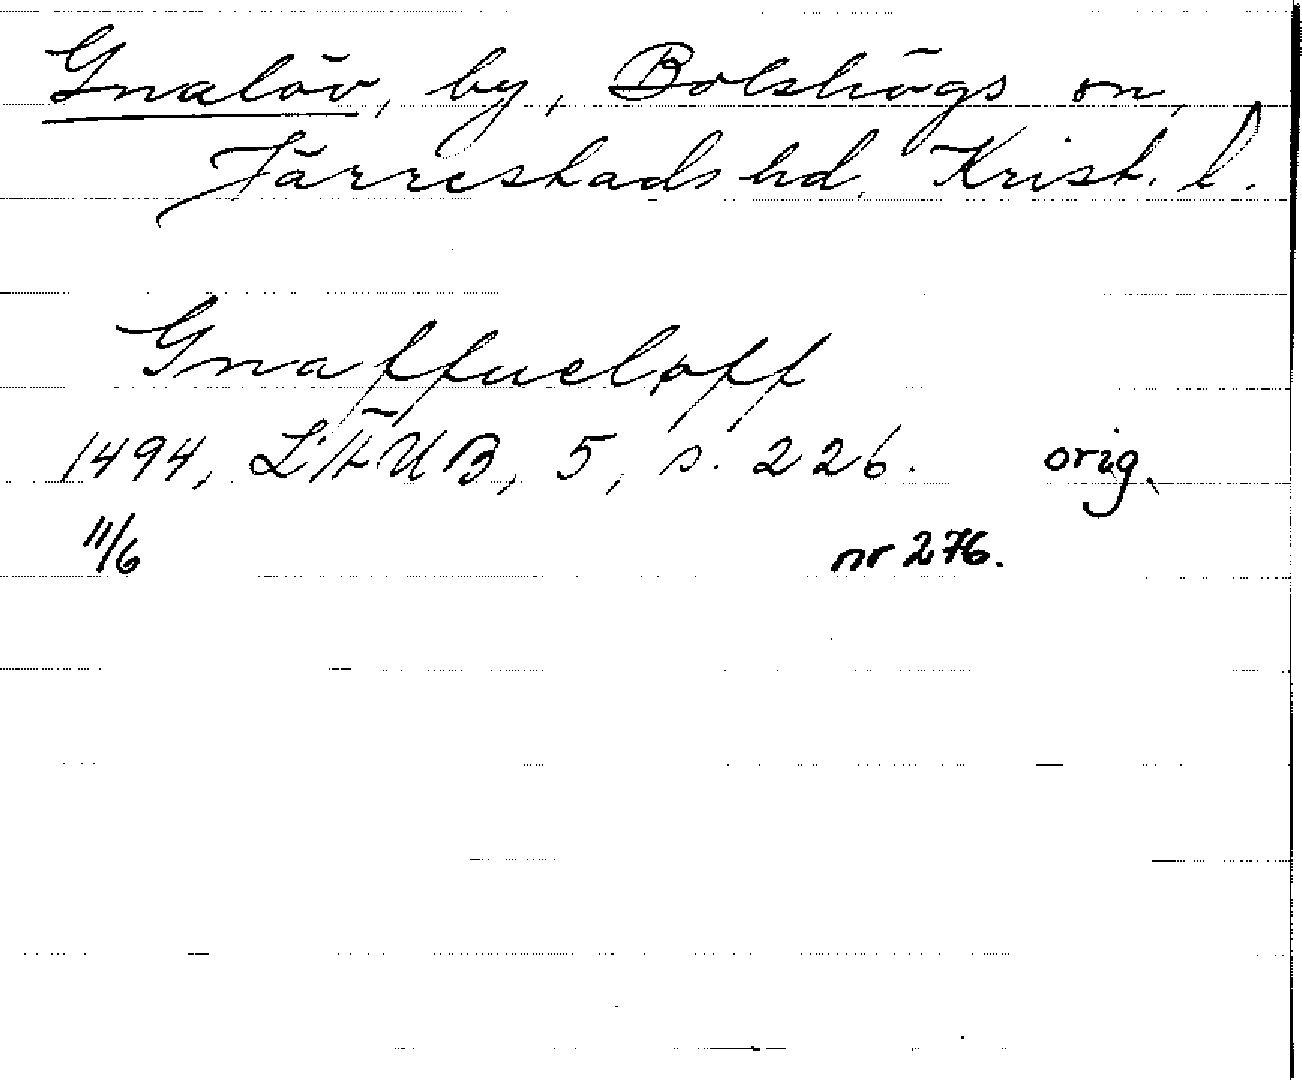 Gnalöv, by, Bolshögs sn,
Järrestads hd, Krist. l.
Gnaffueloff
1494, LÄUB, 5, s. 226. orig.
11/6 nr 276.